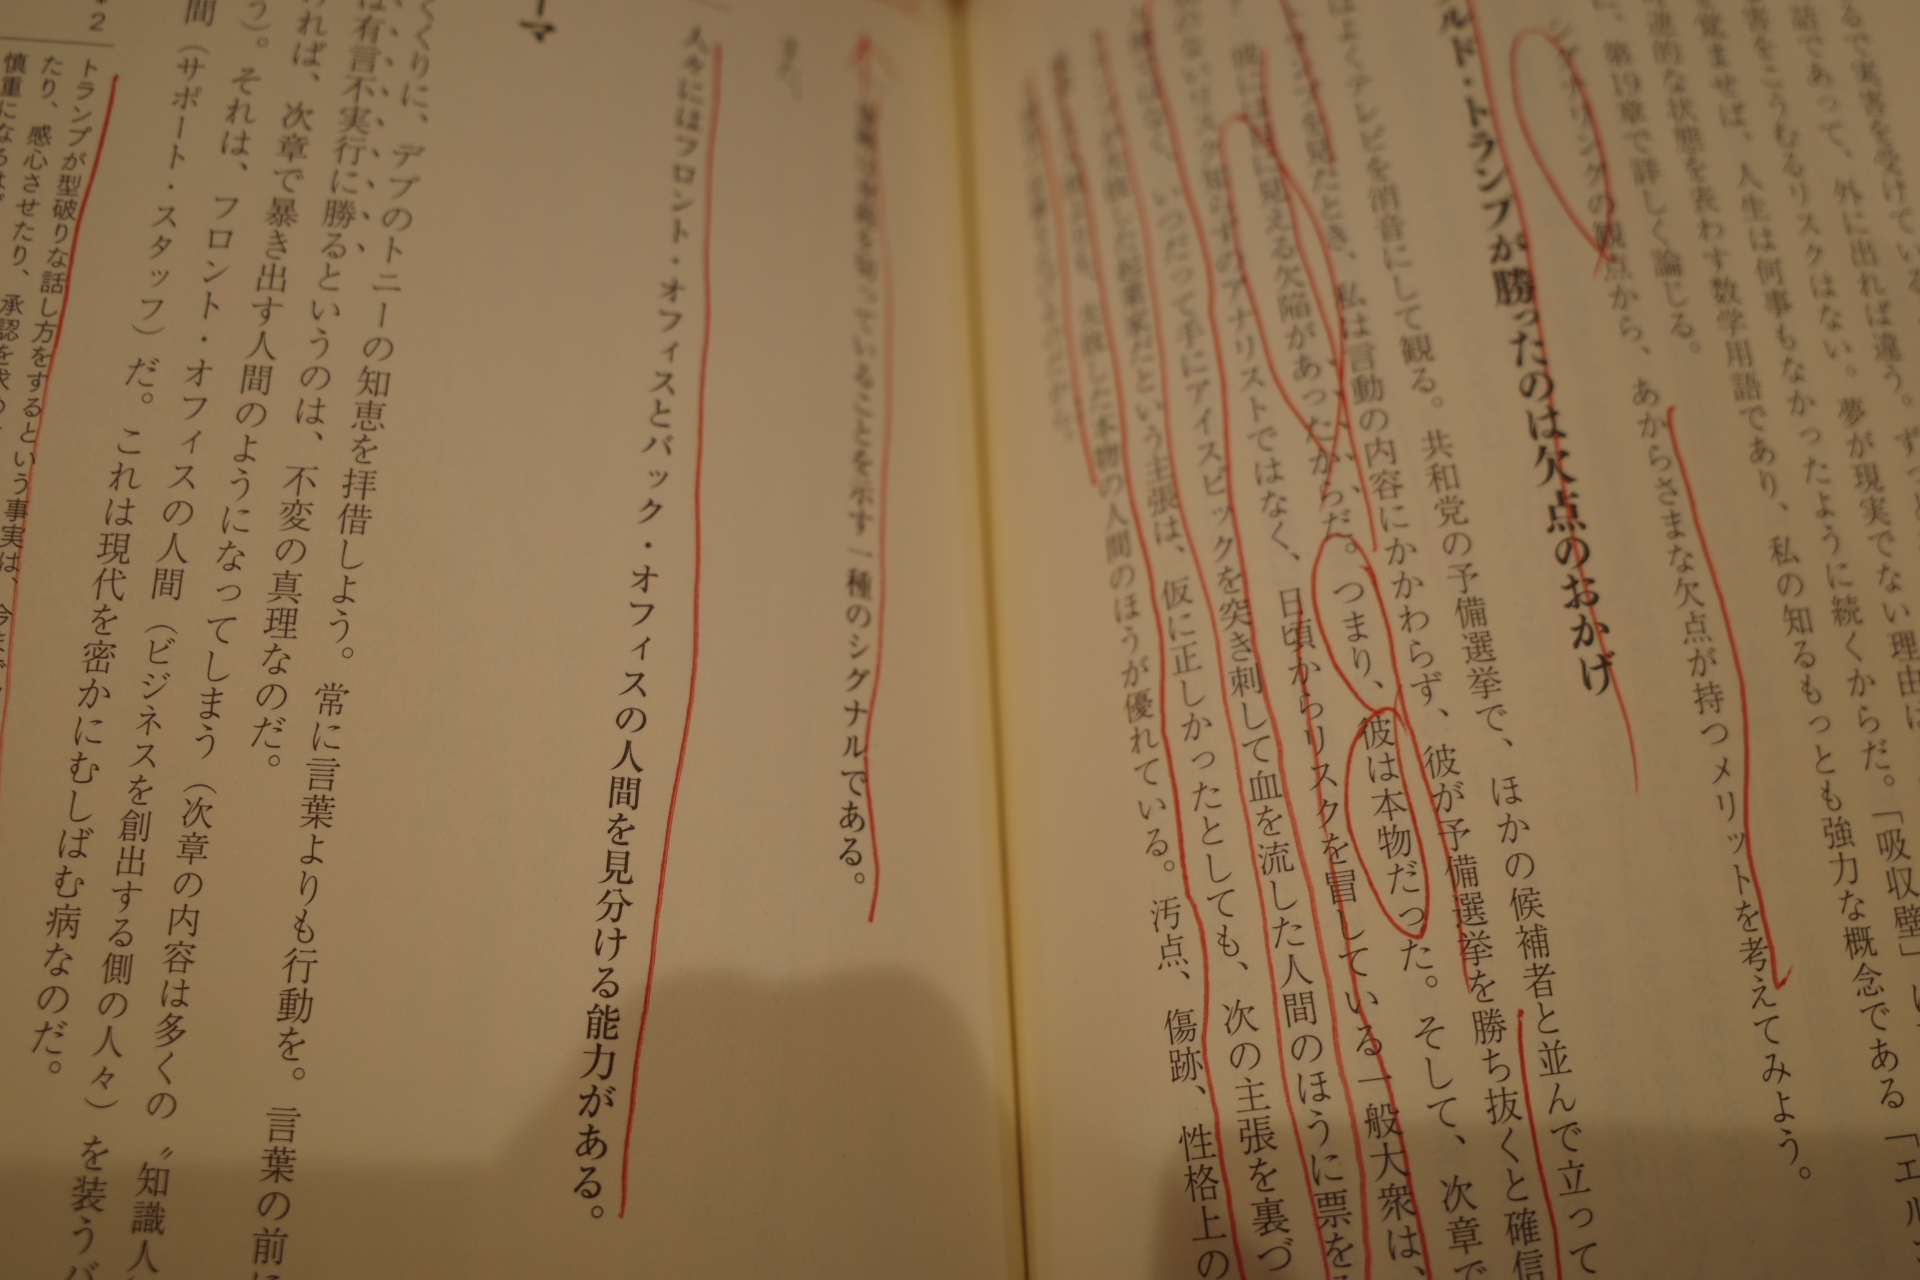 るで実害を受けている
話であって、外に出れば違う。ずっと
害をこうむるリスクはない。夢が現実でない理由は
覚ませば、人生は何事もなかったように続くからだ。「吸収壁」
進的な状態を表わす数学用語であり、私の知るもっとも強力な概念である「エル
に、第19章で詳しく論じる。
シグナリングの観点から、あからさまな欠点が持つメリットを考えてみよう。
ルド・トランプが勝ったのは欠点のおかげ
はよくテレビを消音にして観る。共和党の予備選挙で、ほかの候補者と並んで立って
トランプを見たとき、私は言動の内容にかかわらず、彼が予備選挙を勝ち抜くと確信
彼には目に見える欠陥があったからだ。つまり、彼は本物だった。そして、次章で
ないリスク知らずのアナリストではなく、日頃からリスクを冒している一般大衆は、
いつだって手にアイスピックを突き刺して血を流した人間のほうに票を
した起業家だという主張は、仮に正しかったとしても、次の主張を裏づ
失敗した本物の人間のほうが優れている。汚点、傷跡、性格上の
っていることを示す一種のシグナルである。
人々にはフロント・オフィスとバック・オフィスの人間を見分ける能力がある。
ーマ
くくりに、デブのトニーの知恵を拝借しよう。常に言葉よりも行動を。言葉の前に
は有言不実行に勝るというのは、不変の真理なのだ。
ければ、次章で暴き出す人間のようになってしまう（次章の内容は多くの〝知識人
う）。それは、フロント・オフィスの人間（ビジネスを創出する側の人々）を装うバ
間（サポート・スタッフ）だ。これは現代を密かにむしばむ病なのだ。
42
トランプが型破りな話し方をするという事実は、今まで
たり、感心させたり、承認を求め
慎重になるはず